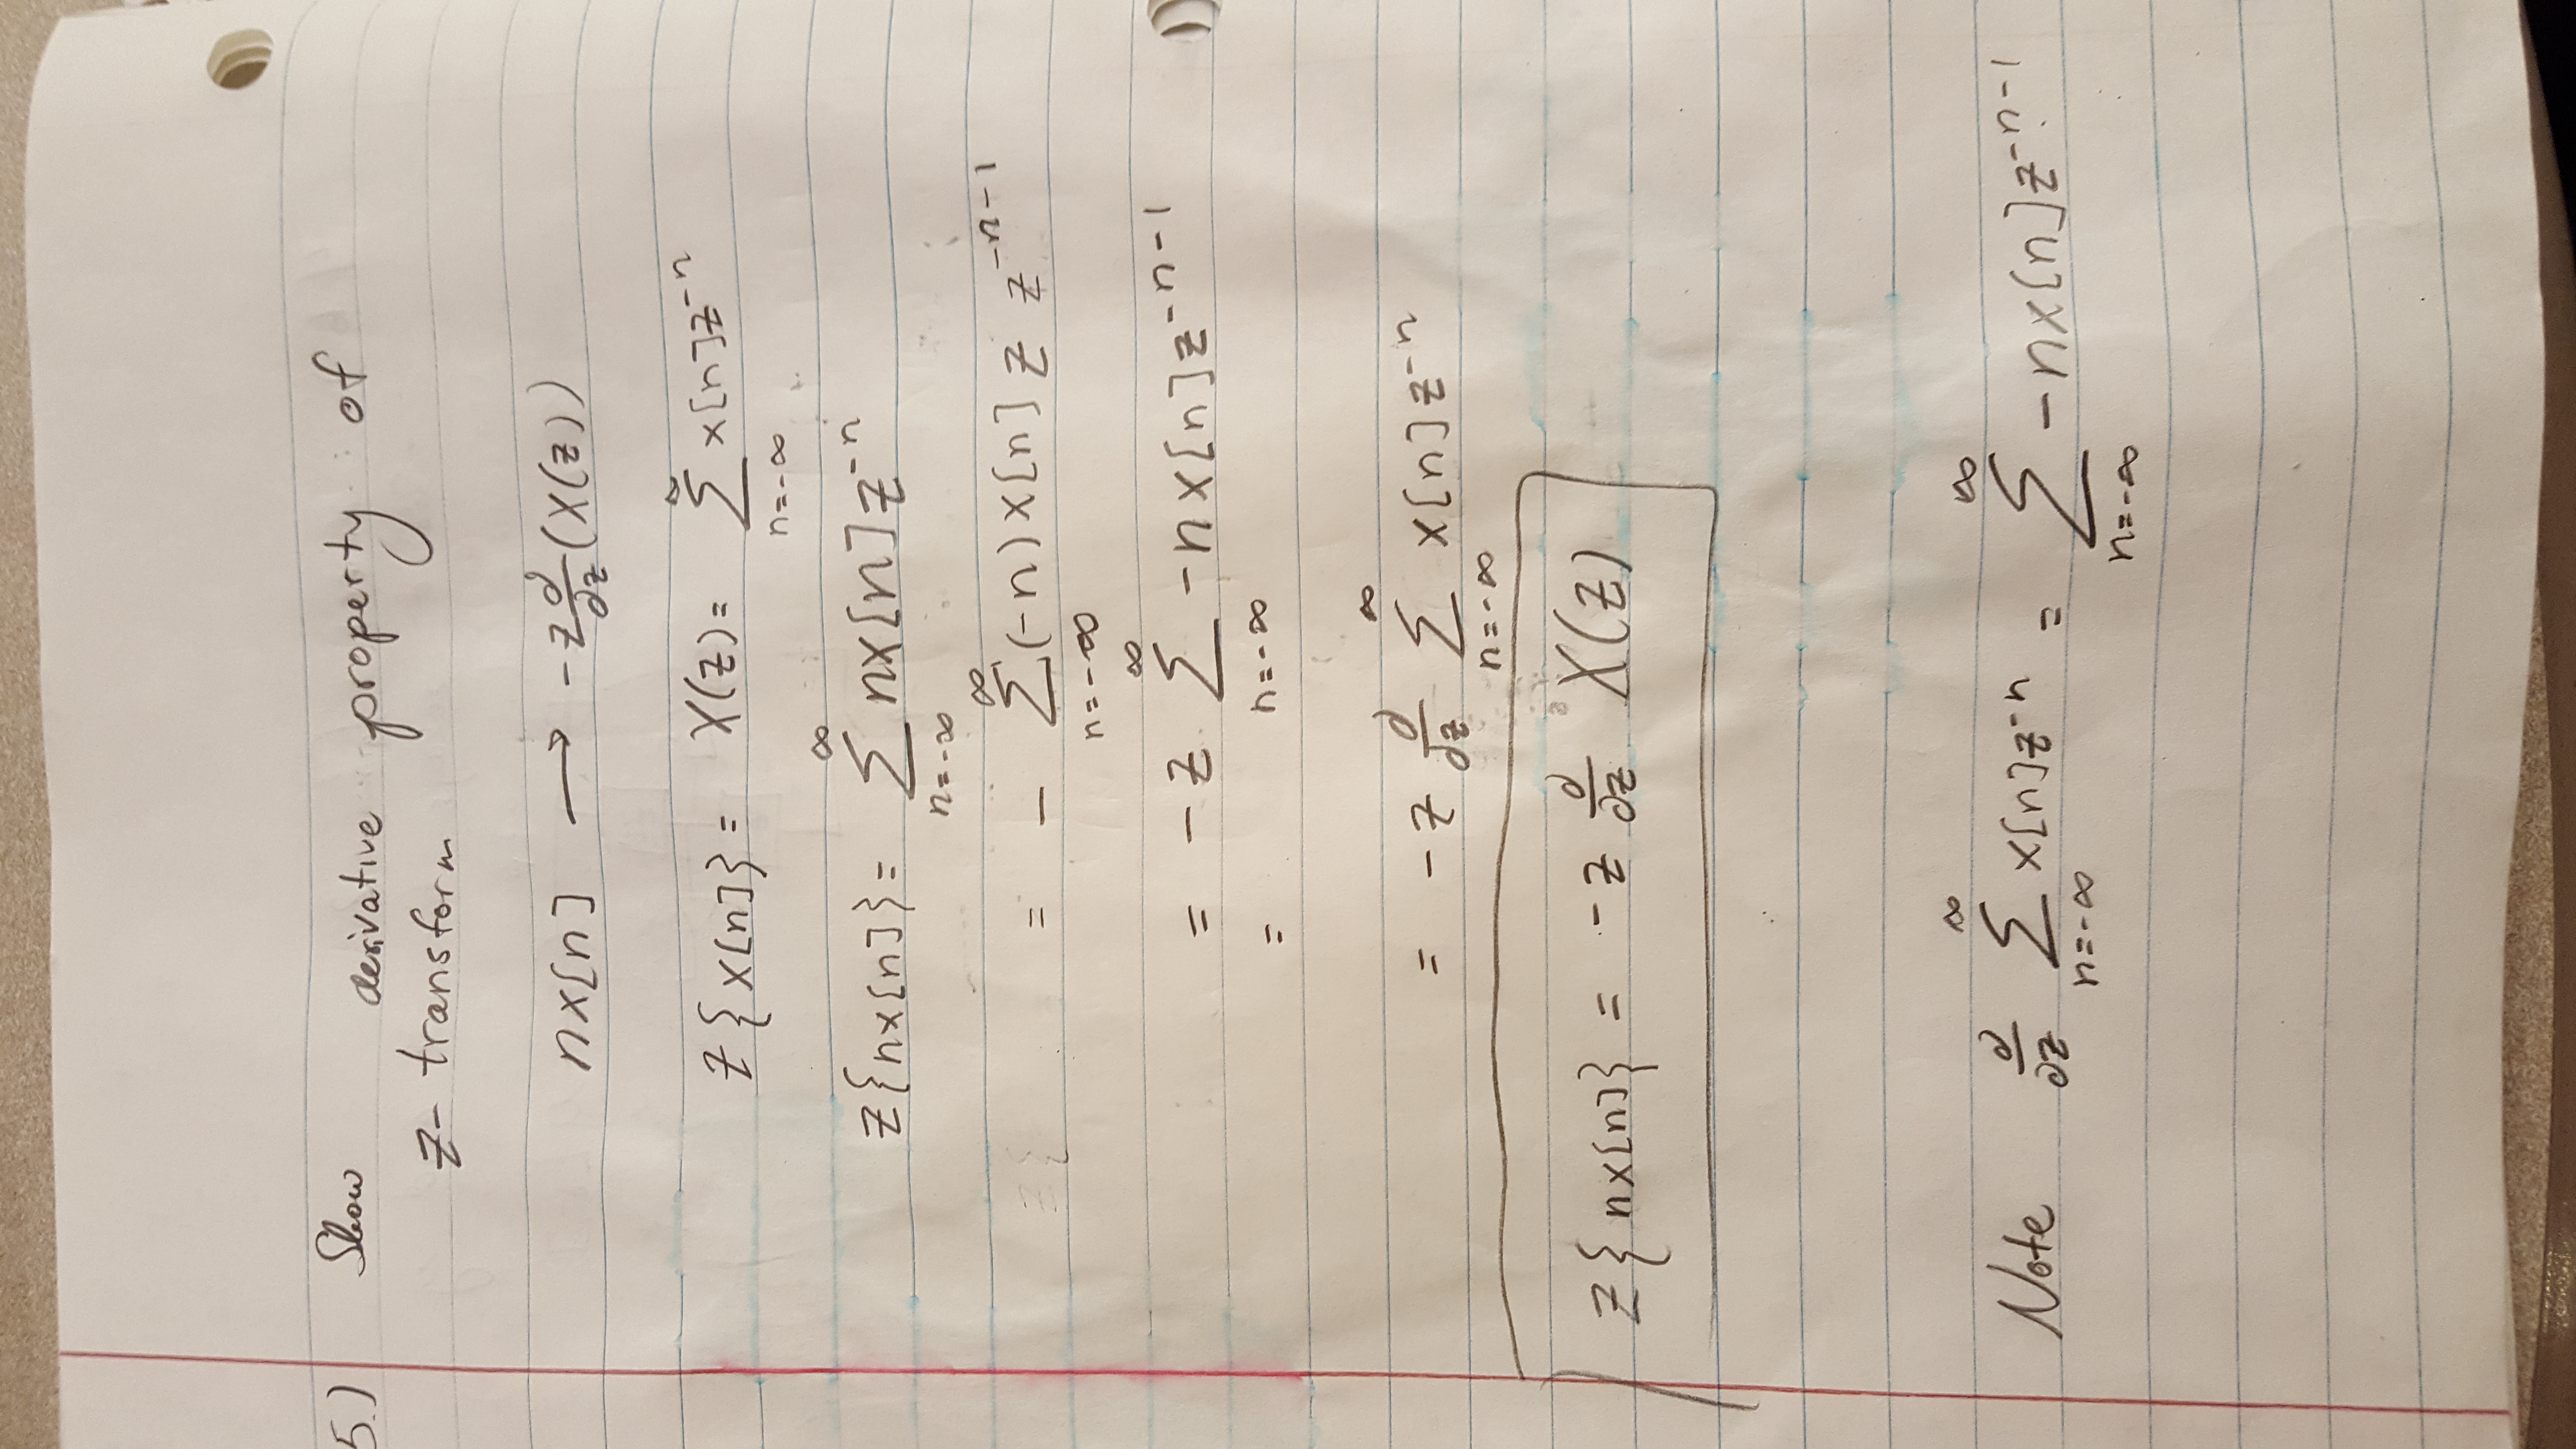 5.) Show derivative property of
z- transform
nx[n] → -z ∂/∂z (X(z))
z{x[n]} = X(z) = ∑_{n=-∞}^{∞} x[n]z^{-n}
z{nx[n]} = ∑_{n=-∞}^{∞} nx[n]z^{-n}
= - ∑_{n=-∞}^{∞} (-n)x[n] z z^{-n-1}
= -z ∑_{n=-∞}^{∞} -nx[n]z^{-n-1}
=
= -z ∂/∂z ∑_{n=-∞}^{∞} x[n]z^{-n}
z{nx[n]} = -z ∂/∂z X(z)
Note ∂/∂z ∑_{n=-∞}^{∞} x[n]z^{-n} = ∑_{n=-∞}^{∞} -nx[n]z^{-n-1}